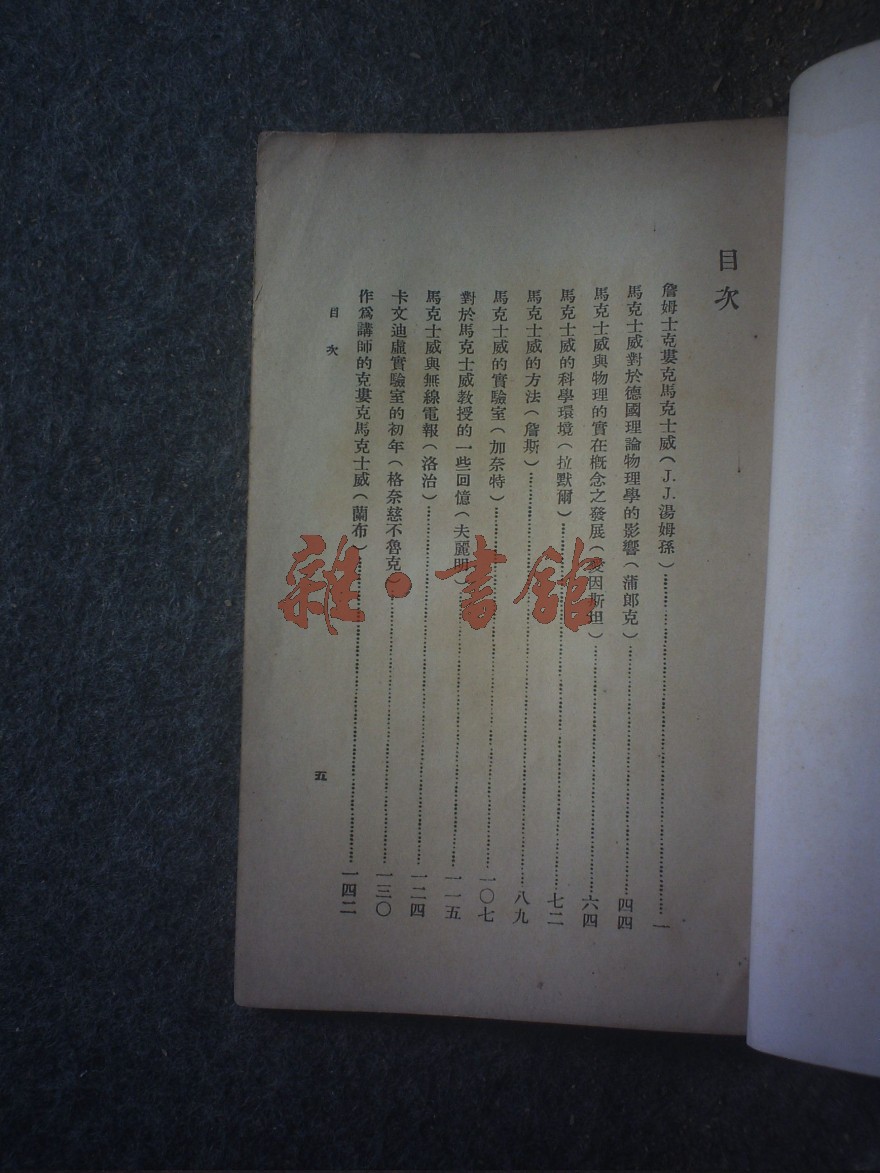 目次
詹姆士克婁克馬克士威（J.J.湯姆孫）……一
馬克士威對於德國理論物理學的影響（蒲郎克）……四四
馬克士威與物理的實在概念之發展（愛因斯坦）……六四
馬克士威的科學環境（拉默爾）……七二
馬克士威的方法（詹斯）……八九
馬克士威的實驗室（加奈特）……一〇七
對於馬克士威教授的一些回憶（夫麗明）……一一五
馬克士威與無線電報（洛治）……一二四
卡文迪虛實驗室的初年（格奈慈不魯克）……一三〇
作爲講師的克婁克馬克士威（蘭布）……一四二
目次
五
雜·書館